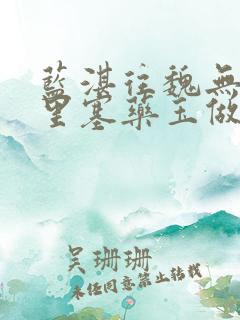 藍湛往魏無
里塞藥玉做
吳珊珊
未经同意禁止转载